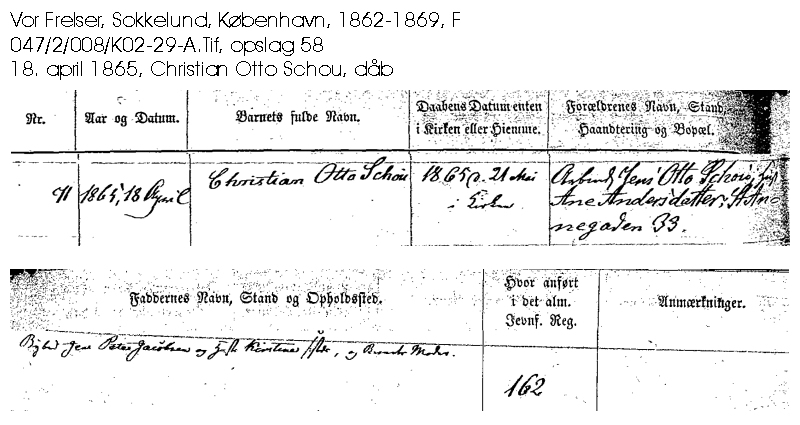 Vor Frelser, Sokkelund, København, 1862-1869, F
047/2/008/K02-29-A.Tif, opslag 58
18. april 1865, Christian Otto Schou, dåb
Nr.
Aar og Datum.
Barnets fulde Navn.
Daabens Datum enten
i Kirken eller Hjemme.
Forældrenes Navn, Stand,
Haandtering og Bopæl.
1865, 18 April
Christian Otto Schou
1865 d. 21 Mai
i Kirken
Arbmd Jens Otto Schou,
Ane Andersdatter, St An-
negaden 33.
Faddernes Navn, Stand og Opholdssted.
Hvor anført
i det alm.
Jevnf. Reg.
Anmærkninger.
Jens Peter Jacobsen og Kirstine, og Barnets Moder.
162